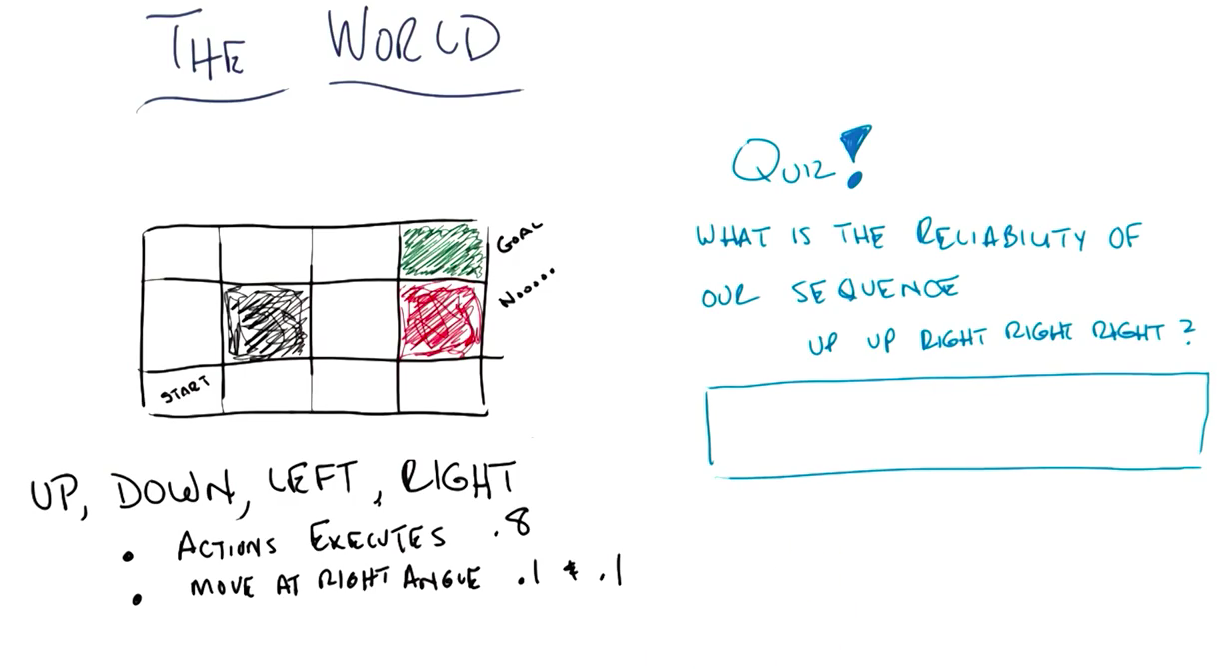 THE WORLD
GOAL
NOOOOO
START
UP, DOWN, LEFT, RIGHT
• ACTIONS EXECUTES .8
• MOVE AT RIGHT ANGLE .1 & .1
QUIZ!
WHAT IS THE RELIABILITY OF
OUR SEQUENCE
UP UP RIGHT RIGHT RIGHT?